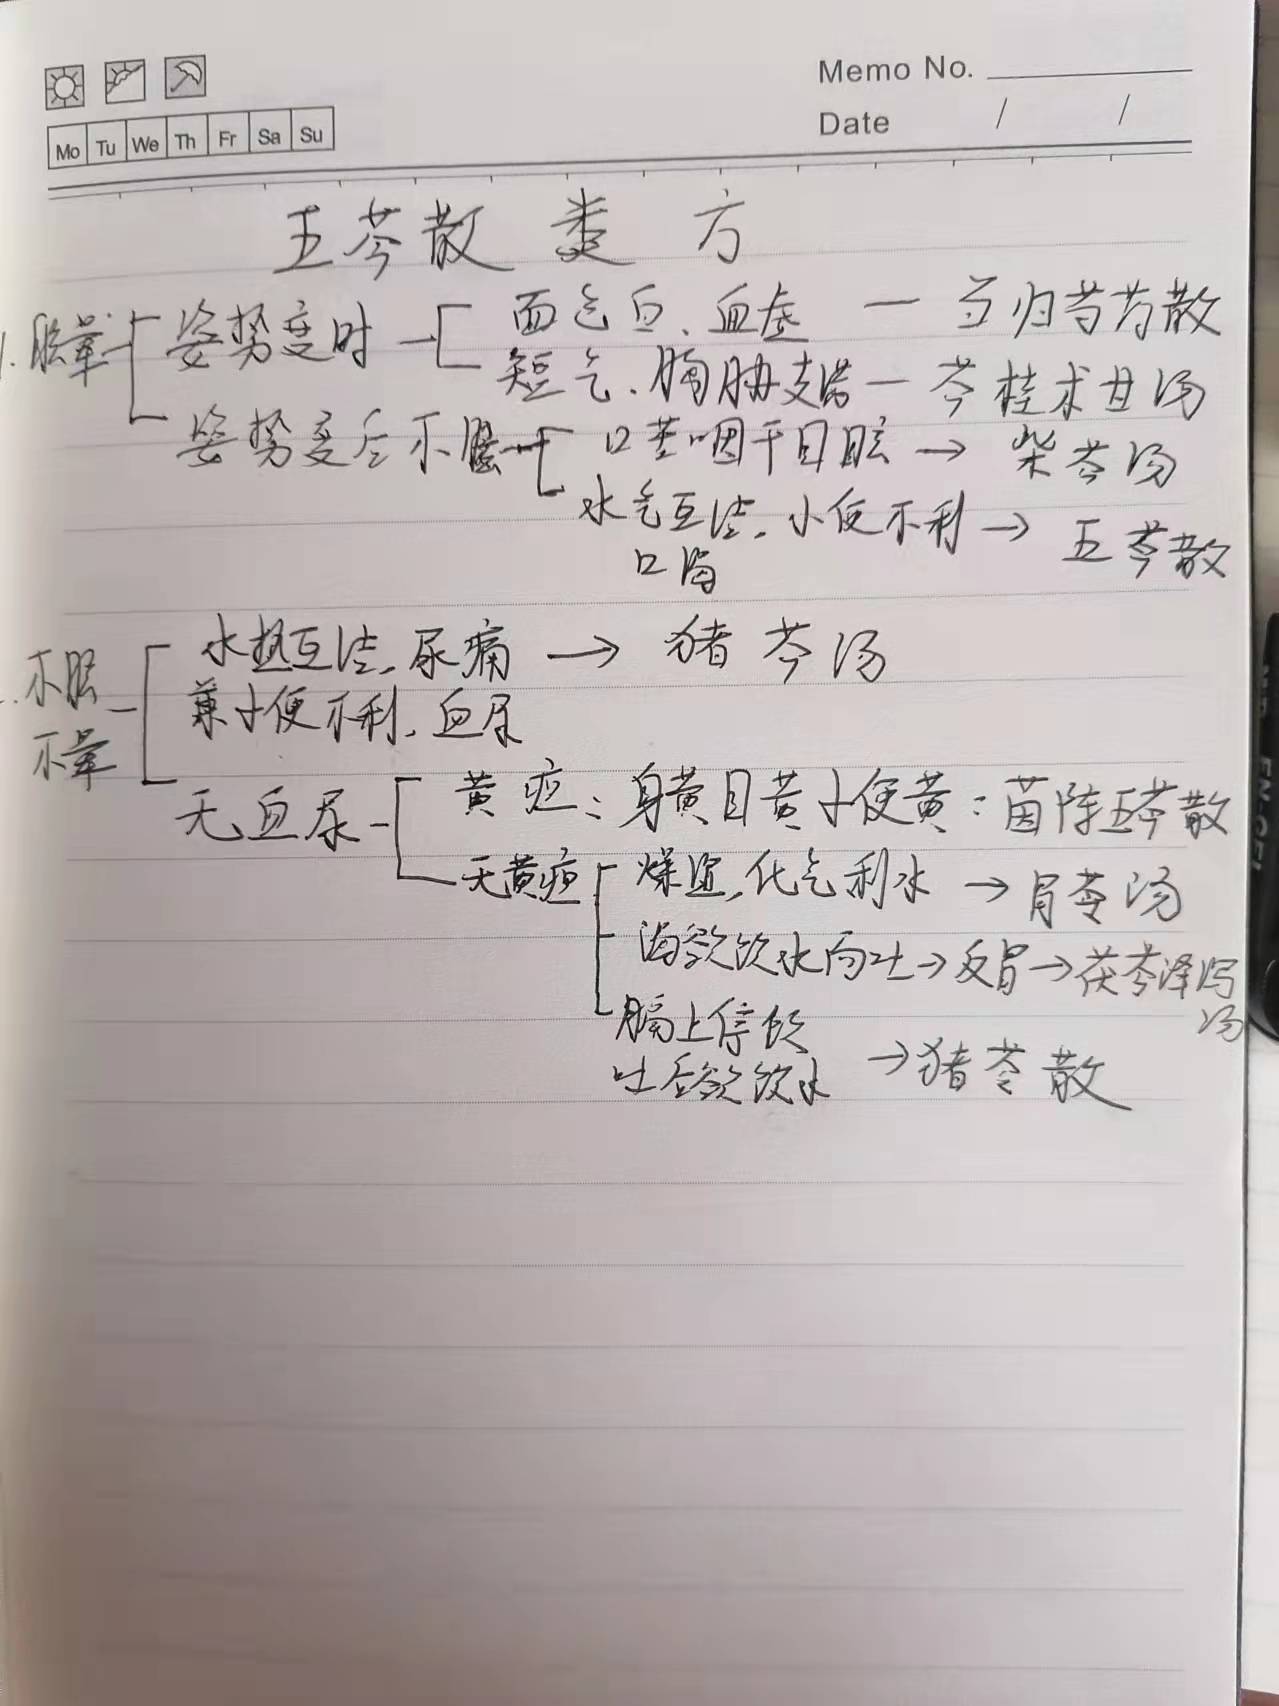 Memo No.
Date / /
Mo Tu We Th Fr Sa Su
五苓散类方
1. 眩晕 姿势变时 面色白、血虚 — 当归芍药散
短气、胸胁支满 — 苓桂术甘汤
姿势变后不眩 口苦咽干目眩 → 柴苓汤
水气互结、小便不利 → 五苓散
口渴
不眩
不晕
水热互结、尿痛 → 猪苓汤
兼小便不利、血尿
无血尿 黄疸：身黄目黄小便黄：茵陈五苓散
无黄疸 燥湿，化气利水 → 胃苓汤
渴欲饮水而吐 → 反胃 → 茯苓泽泻
汤
膈上停饮
吐后欲饮水 → 猪苓散